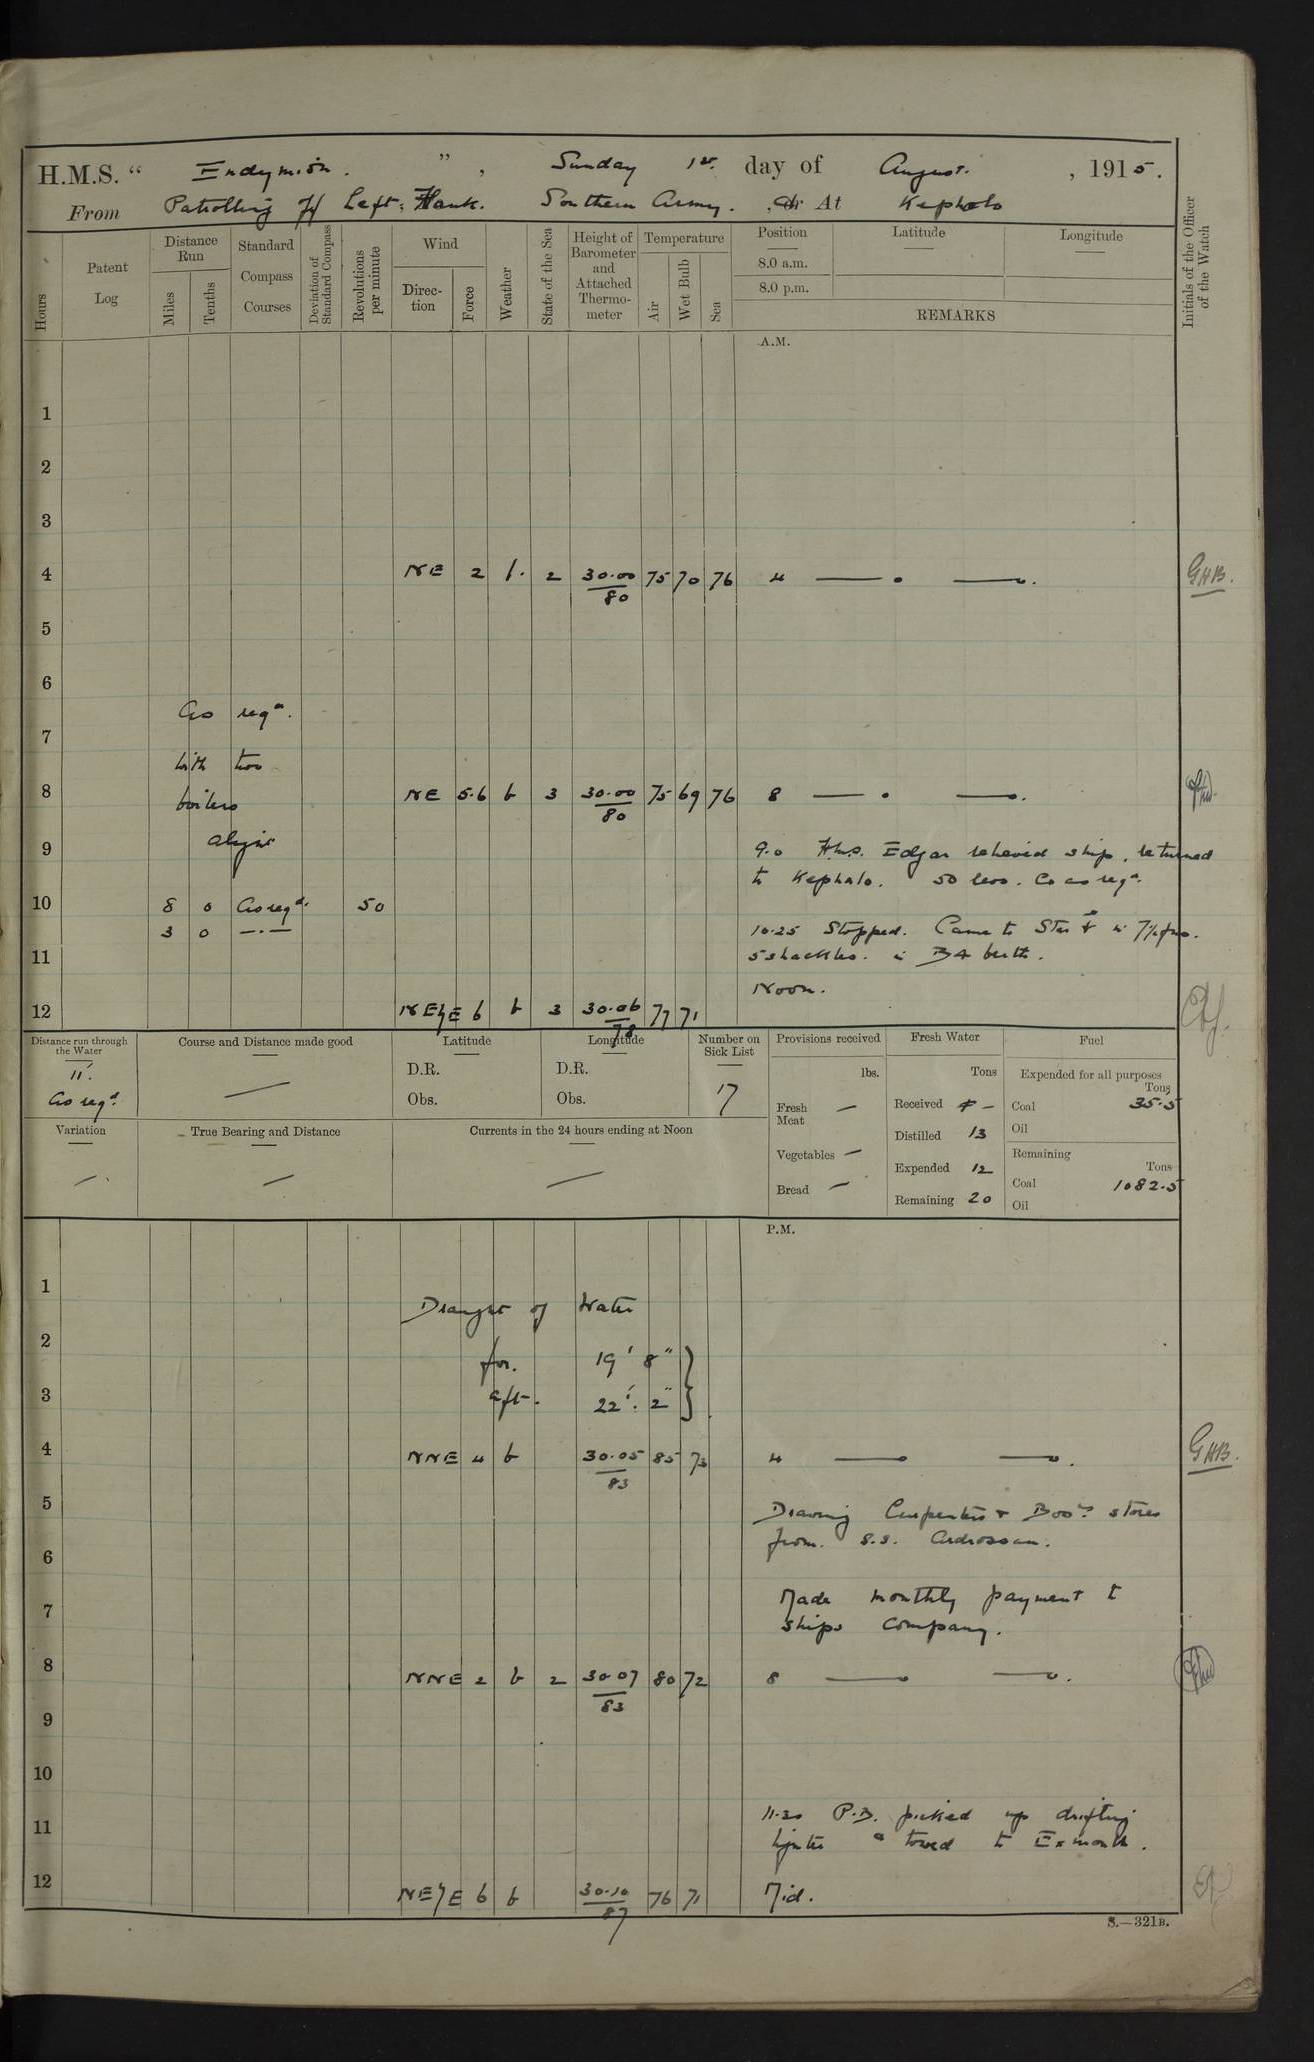 H.M.S. “ Endymion. ” , Sunday 1st. day of August. , 1915.
From Patrolling off Left Flank. Southern Army. , or At Kephalo
Hours
Patent Log
Distance Run
Miles
Tenths
Standard Compass Courses
Deviation of Standard Compass
Revolutions per minute
Wind
Direction
Force
Weather
State of the Sea
Height of Barometer and Attached Thermometer
Temperature
Air
Wet Bulb
Sea
Position
8.0 a.m.
8.0 p.m.
Latitude
Longitude
REMARKS
Initials of the Officer of the Watch
A.M.
1
2
3
4 NE 2 b. 2 30.00 75 70 76 4 —— . —— . GHB.
80
5
6
As reqd.
7
with two
8 boilers NE 5.6 b 3 30.00 75 69 76 8 —— . —— .
80
alight
9 9.0 H.M.S. Edgar relieved ship. returned
to Kephalo. 50 revs. Co as reqd.
10 8 0 As reqd. 50
3 0 —.— 10.25 Stopped. Came to Star in 7½ fms.
11 5 shackles. in B4 berth.
Noon.
12 NE½E 6 b 3 30.06 77 71
78
Distance run through the Water
11'.
As reqd.
Course and Distance made good
—
Latitude
D.R.
Obs.
Longitude
D.R.
Obs.
Number on Sick List
17
Provisions received
lbs.
Fresh Meat —
Vegetables —
Bread —
Fresh Water
Tons
Received —
Distilled 13
Expended 12
Remaining 20
Fuel
Expended for all purposes
Tons
Coal 35.5
Oil
Remaining
Tons
Coal 1082.5
Oil
Variation
—.
True Bearing and Distance
—
Currents in the 24 hours ending at Noon
—
P.M.
1
Draught of Water
2
for. 19' 8"
3 aft. 22'. 2"
4 NNE 4 b 30.05 85 73 4 —— —— . GHB.
83
5 Drawing Carpenters & Bosns. stores
from. S.S. Ardrossan.
6
Made monthly payment to
7 ships company.
8 NNE 2 b 2 30.07 80 72 8 —— —— .
83
9
10
11.30 P.B. picked up drifting
11 lighter & towed to Exmouth.
12 NE½E 6 b 30.10 76 71 Mid.
87
S.—321B.